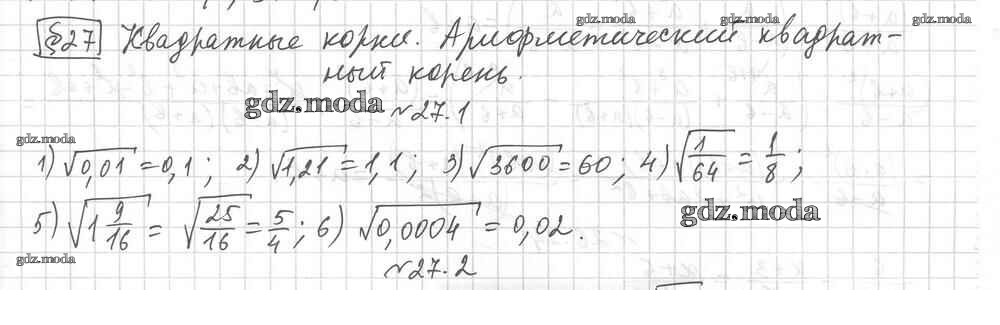 gdz.moda gdz.moda gdz.moda
§27 Квадратные корни. Арифметический квадрат-
ный корень.
gdz.moda №27.1
gdz.moda
1) √0,01 = 0,1; 2) √1,21 = 1,1; 3) √3600 = 60; 4) √1/64 = 1/8;
gdz.moda
5) √1 9/16 = √25/16 = 5/4; 6) √0,0004 = 0,02.
gdz.moda №27.2